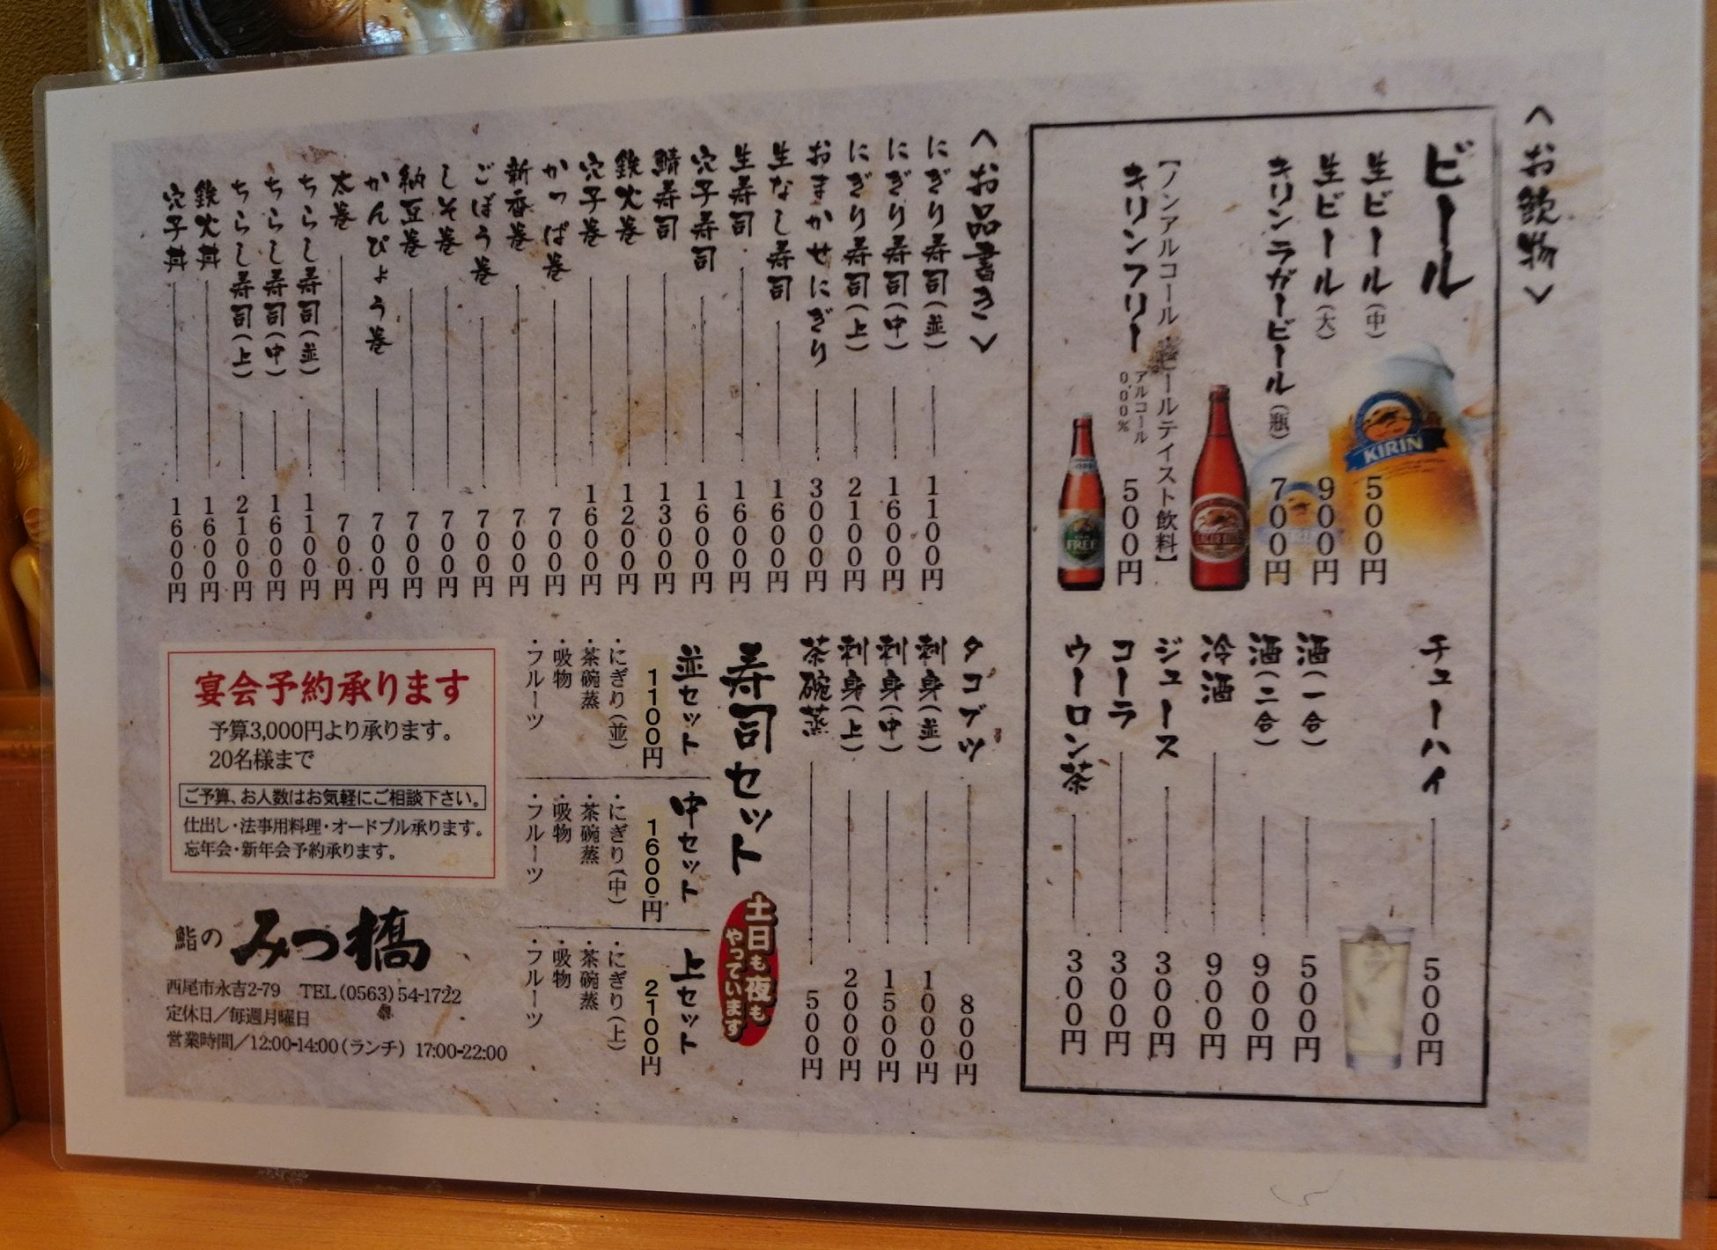 〈お飲物〉
ビール
生ビール(中) 500円
生ビール(大) 900円
キリンラガービール(瓶) 700円
【ノンアルコール・ビールテイスト飲料】
キリンフリー アルコール0.00% 500円
KIRIN
FREE
チューハイ 500円
酒(一合) 500円
酒(二合) 900円
冷酒 900円
ジュース 300円
コーラ 300円
ウーロン茶 300円
〈お品書き〉
にぎり寿司(並) 1100円
にぎり寿司(中) 1600円
にぎり寿司(上) 2100円
おまかせにぎり 3000円
生なし寿司 1600円
生寿司 1600円
穴子寿司 1600円
鯖寿司 1300円
鉄火巻 1200円
穴子巻 1600円
かっぱ巻 700円
新香巻 700円
ごぼう巻 700円
しそ巻 700円
納豆巻 700円
かんぴょう巻 700円
太巻 700円
ちらし寿司(並) 1100円
ちらし寿司(中) 1600円
ちらし寿司(上) 2100円
鉄火丼 1600円
穴子丼 1600円
タコブツ 800円
刺身(並) 1000円
刺身(中) 1500円
刺身(上) 2000円
茶碗蒸 500円
寿司セット
土日も夜も
やっています
並セット 1100円
・にぎり(並)
・茶碗蒸
・吸物
・フルーツ
中セット 1600円
・にぎり(中)
・茶碗蒸
・吸物
・フルーツ
上セット 2100円
・にぎり(上)
・茶碗蒸
・吸物
・フルーツ
宴会予約承ります
予算3,000円より承ります。
20名様まで
ご予算、お人数はお気軽にご相談下さい。
仕出し・法事用料理・オードブル承ります。
忘年会・新年会予約承ります。
鮨の みつ橋
西尾市永吉2-79 TEL(0563)54-1722
定休日/毎週月曜日
営業時間/12:00-14:00(ランチ) 17:00-22:00